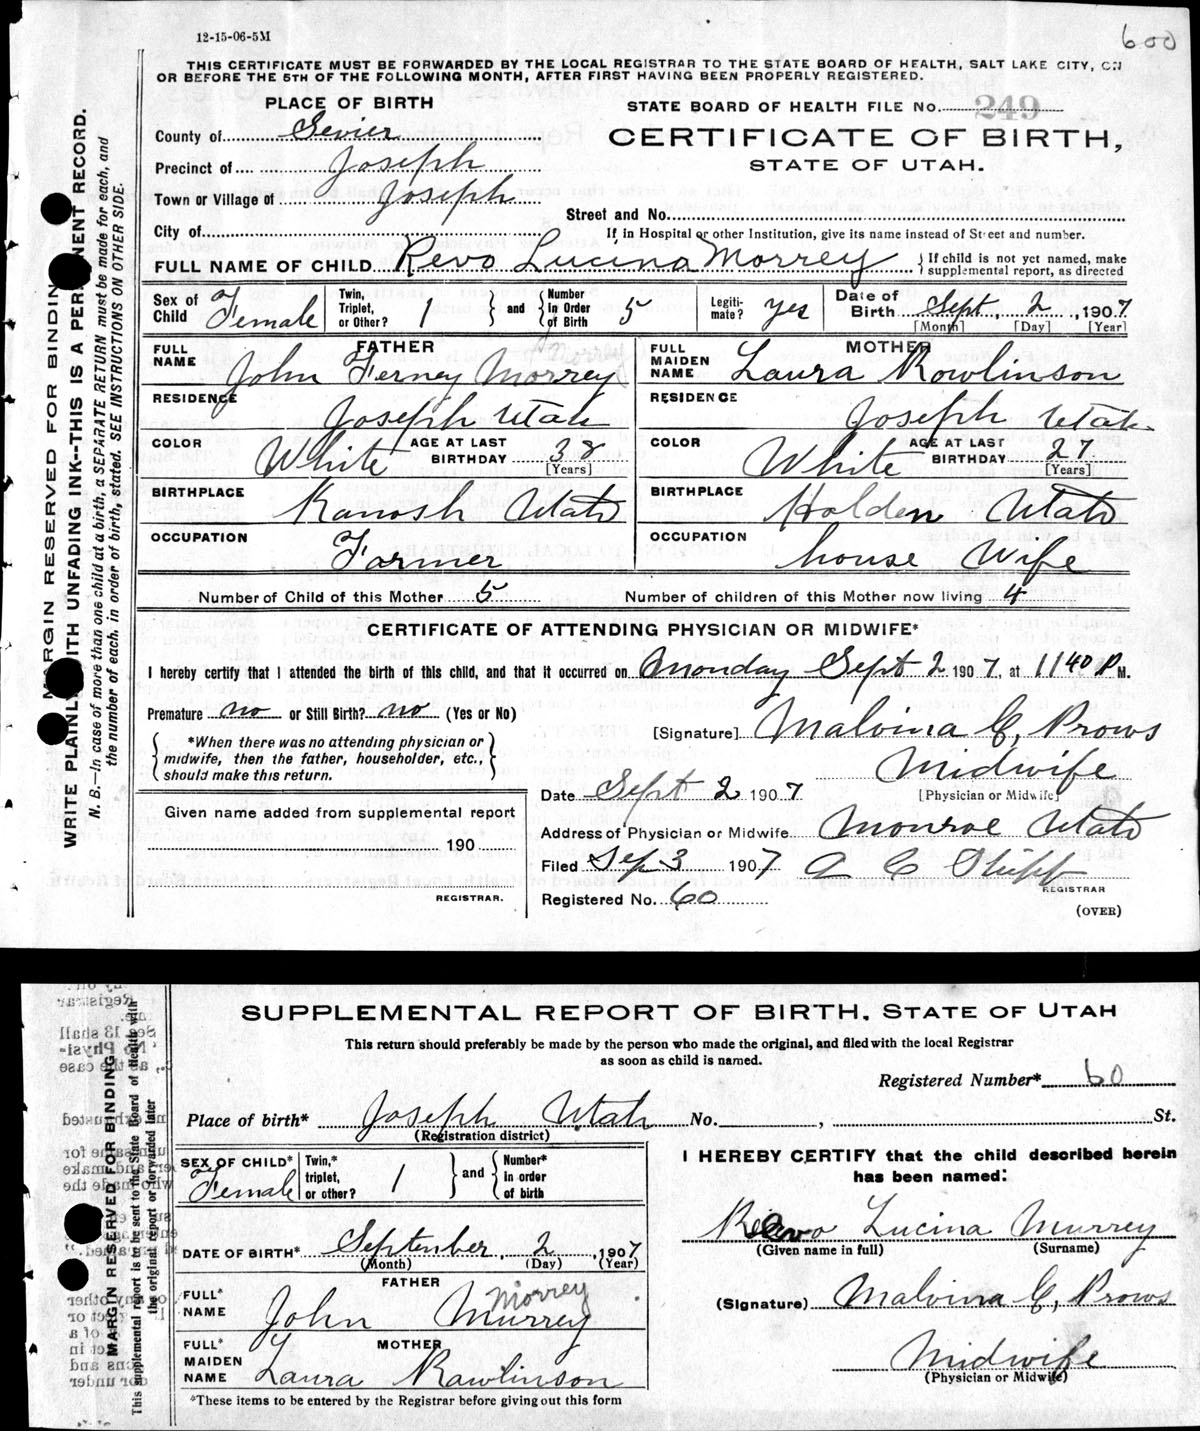 12-15-06-5M
600
THIS CERTIFICATE MUST BE FORWARDED BY THE LOCAL REGISTRAR TO THE STATE BOARD OF HEALTH, SALT LAKE CITY, ON
OR BEFORE THE 5TH OF THE FOLLOWING MONTH, AFTER FIRST HAVING BEEN PROPERLY REGISTERED.
PLACE OF BIRTH
STATE BOARD OF HEALTH FILE No. 249
County of Sevier
CERTIFICATE OF BIRTH,
STATE OF UTAH.
Precinct of Joseph
Town or Village of Joseph
Street and No.
City of
If in Hospital or other Institution, give its name instead of Street and number.
FULL NAME OF CHILD Revo Lucina Morrey { If child is not yet named, make supplemental report, as directed
Sex of Child Female Twin, Triplet, or Other? 1 } and { Number in Order of Birth 5 Legitimate? yes Date of Birth Sept, 2, 1907
[Month] [Day] [Year]
FATHER
MOTHER
FULL NAME John Ferney Morrey Morrey
FULL MAIDEN NAME Laura Rowlinson
RESIDENCE Joseph Utah
RESIDENCE Joseph Utah
COLOR White AGE AT LAST BIRTHDAY 32 [Years]
COLOR White AGE AT LAST BIRTHDAY 27 [Years]
BIRTHPLACE Kanosh Utah
BIRTHPLACE Holden Utah
OCCUPATION Farmer
OCCUPATION house Wife
Number of Child of this Mother 5 Number of children of this Mother now living 4
CERTIFICATE OF ATTENDING PHYSICIAN OR MIDWIFE*
I hereby certify that I attended the birth of this child, and that it occurred on Monday Sept 2 1907, at 11 40 P M.
Premature no or Still Birth? no (Yes or No)
[Signature] Malvina C, Prows
{ *When there was no attending physician or midwife, then the father, householder, etc., should make this return. }
Midwife
[Physician or Midwife]
Date Sept 2 1907
Given name added from supplemental report
Address of Physician or Midwife Monroe Utah
190
Filed Sep 3 1907 A C Shipp
REGISTRAR
REGISTRAR.
Registered No. 60
(OVER)
MARGIN RESERVED FOR BINDING
WRITE PLAINLY WITH UNFADING INK--THIS IS A PERMANENT RECORD.
N. B.—In case of more than one child at a birth, a SEPARATE RETURN must be made for each, and
the number of each, in order of birth, stated. SEE INSTRUCTIONS ON OTHER SIDE.
SUPPLEMENTAL REPORT OF BIRTH, STATE OF UTAH
This return should preferably be made by the person who made the original, and filed with the local Registrar
as soon as child is named.
Registered Number* 60
Place of birth* Joseph Utah No. , St.
(Registration district)
SEX OF CHILD* Female Twin,* triplet, or other? 1 } and { Number* in order of birth
I HEREBY CERTIFY that the child described herein
has been named:
Revo Lucina Murrey
(Given name in full) (Surname)
DATE OF BIRTH* September, 2, 1907
(Month) (Day) (Year)
FATHER
FULL* NAME John Murrey Morrey
(Signature) Malvina C, Prows
MOTHER
FULL* MAIDEN NAME Laura Rawlinson
Midwife
(Physician or Midwife)
*These items to be entered by the Registrar before giving out this form
MARGIN RESERVED FOR BINDING
This supplemental report is to be sent to the State Board of Health with
the original report or forwarded later